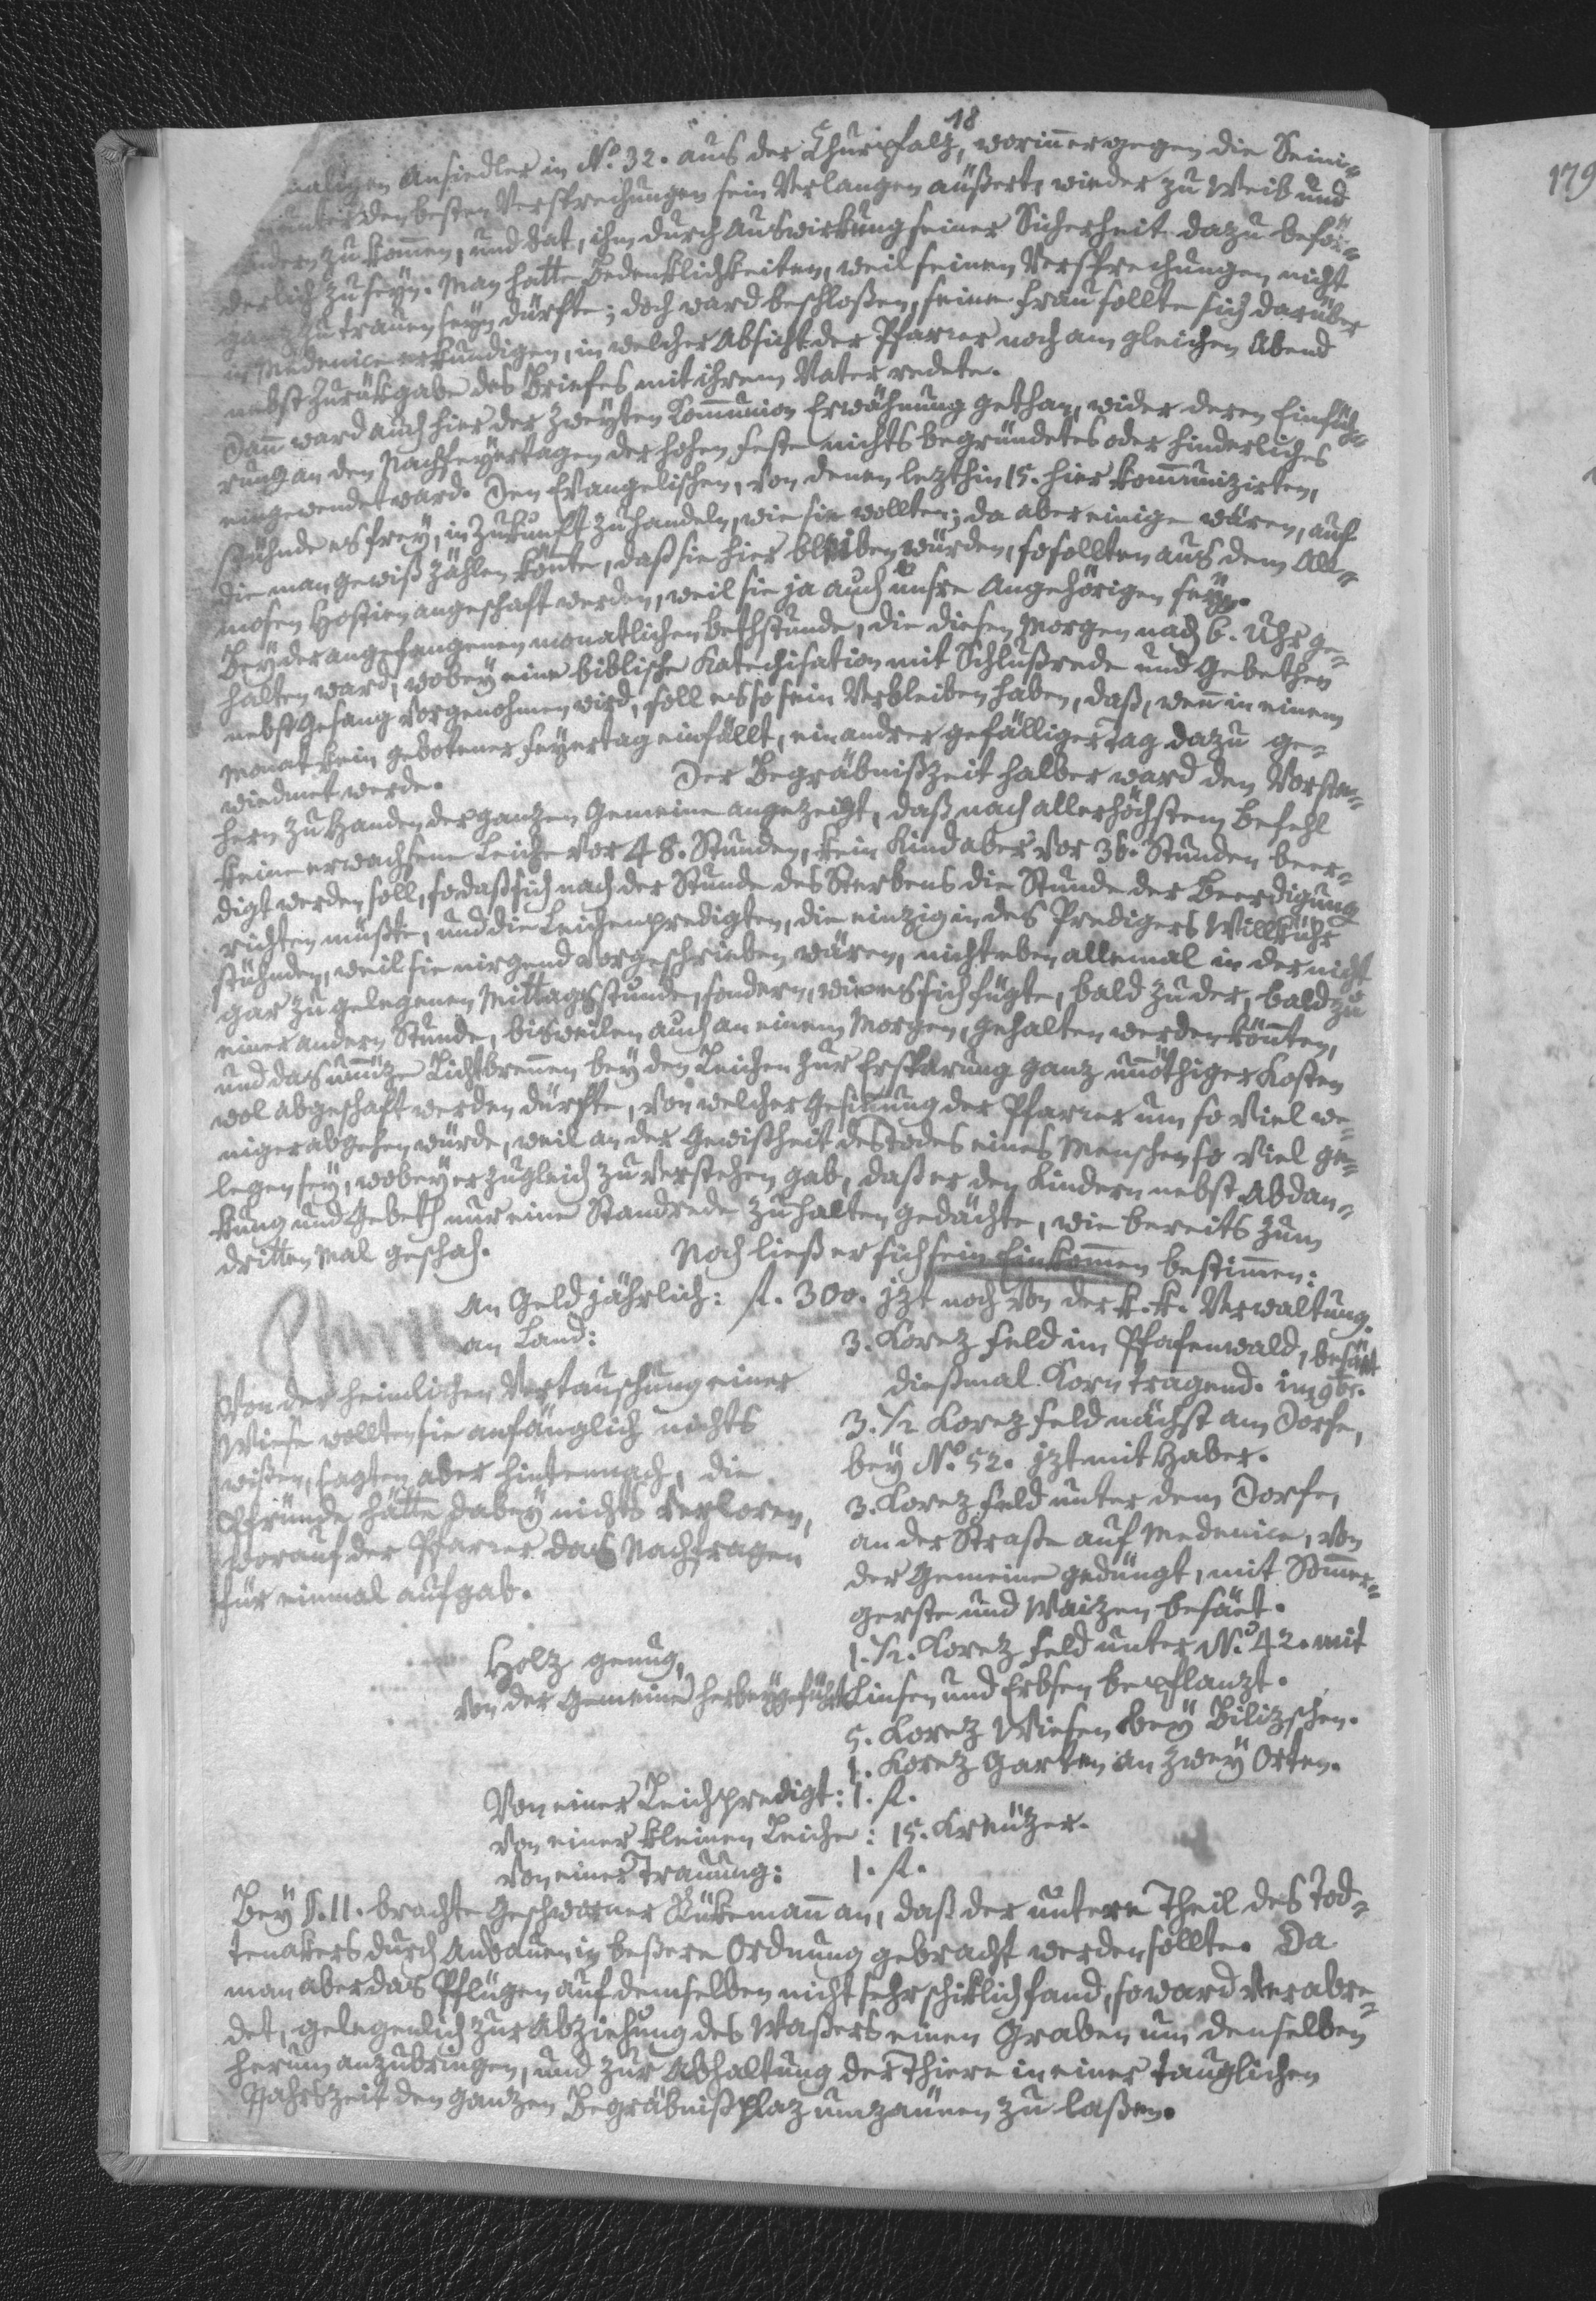 18
maligen Ansiedler in No. 32. aus der Churpfalz, worinn er gegen die Seini=
unter den besten Versprechungen sein Verlangen äußert, wieder zu Weib und
Kindern zu kommen, und bat, ihm durch Auswirkung seiner Sicherheit dazu beför=
derlich zu seyn. Man hatte Bedenklichkeiten, weil seinen Versprechungen nicht
ganz zu trauen seyn dürfte; doch ward beschloßen, seine Frau sollte sich darüber
in Medenice erkundigen, in welcher Absicht der Pfarrer noch am gleichen Abend
nebst Zurükgabe des Briefes mit ihrem Vater redete.
Dann ward auch hier der zweyten Kommunion Erwähnung gethan, wider deren Einfüh=
rung an den Nachfeyertagen der hohen Feste nichts begründetes oder hinderliches
eingewendet ward. Den Evangelischen, von denen lezthin 15. hier kommunizirten,
stühnde es frey, in Zukunft zu handeln, wie sie wollten; da aber einige wären, auf
die man gewiß zählen könnte, daß sie hier bleiben würden, so sollten aus dem All=
mosen Hostien angeschaft werden, weil sie ja auch unsre Angehörigen seyn.
Bey der angefangenen monatlichen Bethstunde, die diesen Morgen nach 6. Uhr ge=
halten ward, wobey eine biblische Katechisation mit Schlußrede und Gebethen
nebst Gesang vorgenohmen wird, soll es so sein Verbleiben haben, daß, wenn in einem
Monat kein gebotener Feyertag einfällt, ein andrer gefälliger Tag dazu ge=
wiedmet werde. Der Begräbnißzeit halber ward den Vorste=
hern zu Handen der ganzen Gemeine angezeigt, daß nach allerhöchstem Befehl
keine erwachsene Leiche vor 48. Stunden, kein Kind aber vor 36. Stunden beer=
digt werden soll, so daß sich nach der Stunde des Sterbens die Stunde der Beerdigung
richten müßte, und die Leichenpredigten, die einzig in des Predigers Willkühr
stühnden, weil sie nirgend vorgeschrieben wären, nicht eben allemal in der nicht
gar zu gelegenen Mittagsstunde, sondern, wie es sich fügte, bald zu der, bald zu
einer andern Stunde, bisweilen auch an einem Morgen, gehalten werden könnten,
und das unnüze Lichtbrennen bey den Leichen zur Ersparung ganz unnöthiger Kosten
wol abgeschaft werden dürfte, von welcher Gesinnung der Pfarrer um so viel we=
niger abgehen würde, weil an der Gewißheit des Todes eines Menschen so viel ge=
legen sey, wobey er zugleich zu verstehen gab, daß er den Kindern nebst Abdan=
kung und Gebeth nur eine Standrede zu halten gedächte, wie bereits zum
dritten Mal geschah. Noch ließ er sich sein Einkommen bestimmen:
An Geld jährlich: fl. 300. izt noch von der k. k. Verwaltung.
an Land: 3. Korez Feld im Pfafenwald, besäet
dießmal Korn tragend. im 9br.
3. 1/2 Korez Feld nächst am Dorfe,
bey No. 52. izt mit Haber.
3. Korez Feld unter dem Dorfe,
an der Straße auf Medenice, von
der Gemeine gedüngt, mit Sommer=
gerste und Waizen besäet.
1. 1/2. Korez Feld unter No. 42. mit
Linsen und Erbsen bepflanzt.
5. Korez Wiesen bey Bilizschen.
1. Korez Garten an zwey Orten.
Pfarr
Von der heimlichen Vertauschung einer
Wiese wollten sie anfänglich nichts
wißen, sagten aber hintennach, die
Pfründe hätte dabey nichts verloren,
worauf der Pfarrer das Nachfragen
für einmal aufgab.
Holz genug,
von der Gemeine herbeygeführt
Von einer Leichpredigt: 1. fl.
von einer kleinen Leiche: 15. Kreuzer.
von einer Trauung: 1. fl.
Bey §. 11. brachte Geschworner Rükemann an, daß der untere Theil des Tod=
tenakers durch Anbauen in beßere Ordnung gebracht werden sollte. Da
man aber das Pflügen auf demselben nicht sehr schiklich fand, so ward verabre=
det, gelegenlich zur Abziehung des Waßers einen Graben um denselben
herum anzubringen, und zur Abhaltung der Thiere in einer tauglichen
Jahrszeit den ganzen Begräbnißplaz umzäunen zu laßen.
179